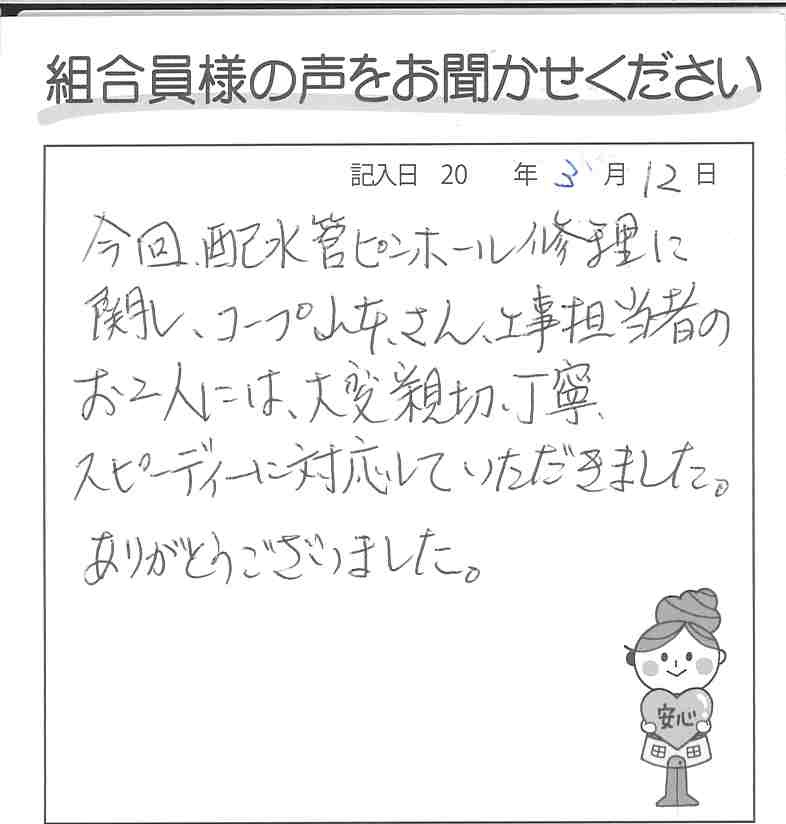 組合員様の声をお聞かせください
記入日 20 年 3 月 12 日
今回、配水管ピンホール修理に
関し、コープ山本さん、工事担当者の
お2人には、大変親切、丁寧、
スピーディーに対応していただきました。
ありがとうございました。
安心